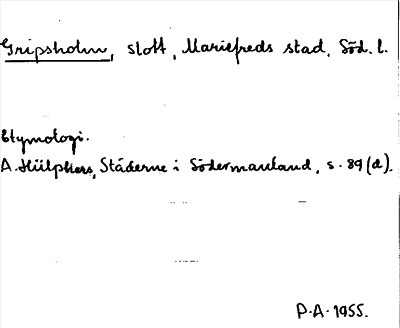 Gripsholm, slott, Mariefreds stad, Söd. l.
Etymologi.
A. Hülphers, Städerne i Södermanland, s. 89 (d).
P.A. 1955.